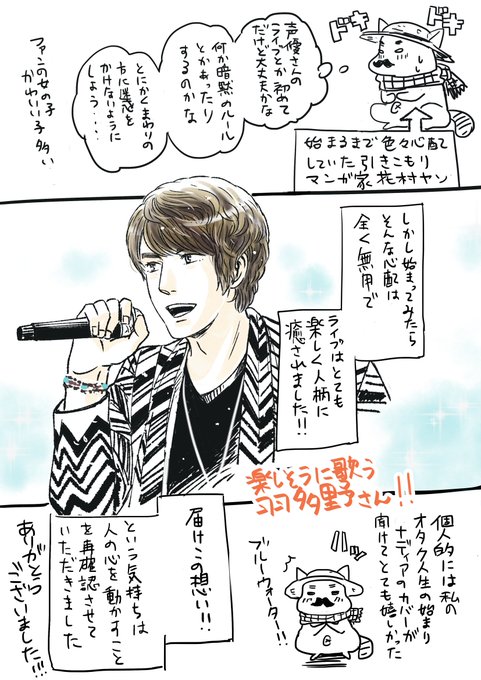 ドキ
ドキ
声優さんの
ライブとか初めて
だけど大丈夫かな
何か暗黙のルール
とかあったり
するのかな
とにかくまわりの
方に迷惑を
かけないように
しよう・・・・
ファンの女の子
かわいい子多い
始まるまで色々心配
していた引きこもり
マンガ家花村ヤソ
しかし始まってみたら
そんな心配は
全く無用で
ライブはとても
楽しく人柄に
癒されました!!
楽しそうに歌う
羽多野さん!!
個人的には私の
オタク人生の始まり
ナディアのカバーが
聞けてとても嬉しかった
ブルーウォーター!!
届けこの想い!!
という気持ちは
人の心を動かすこと
を再確認させて
いただきました
ありがとう
ございました!!!